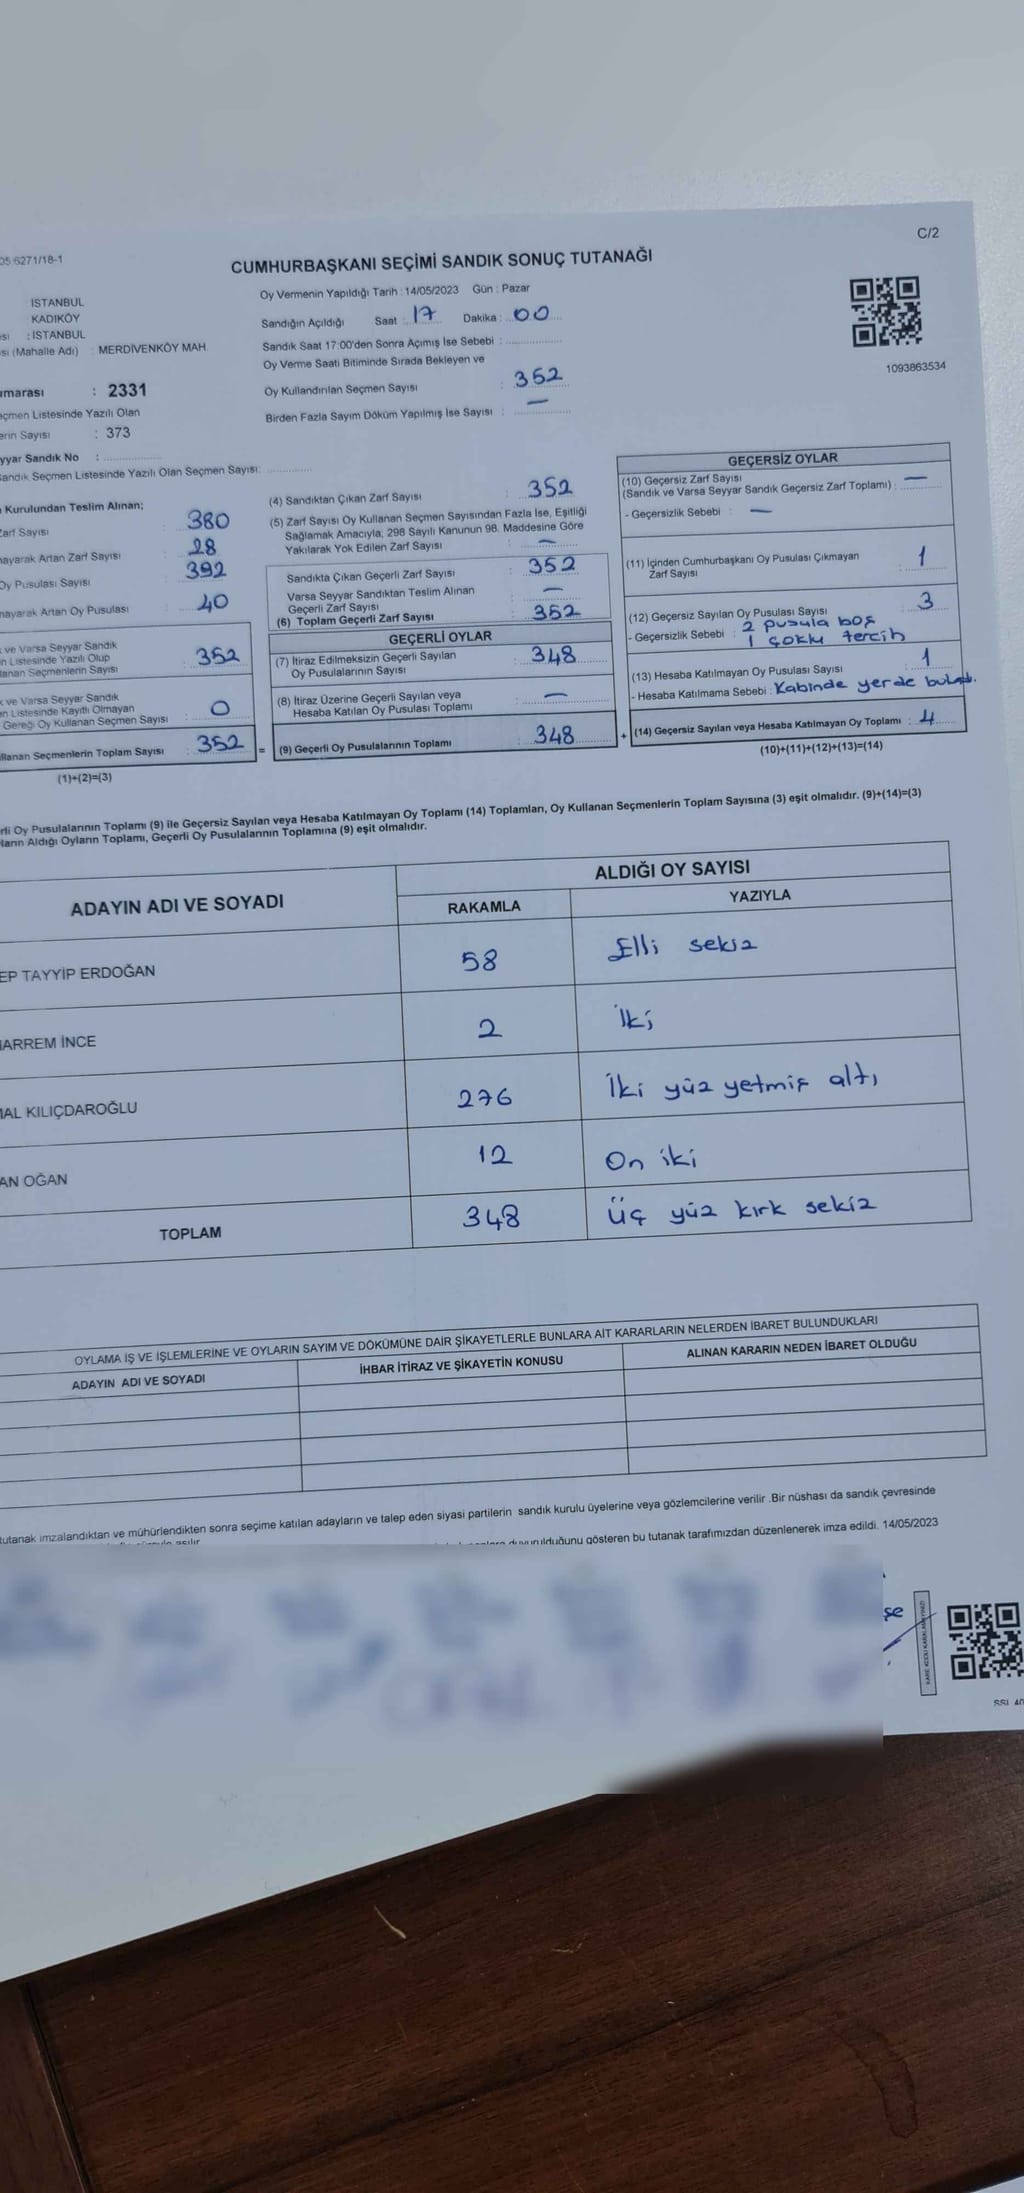 05.6271/18-1
C/2
CUMHURBAŞKANI SEÇİMİ SANDIK SONUÇ TUTANAĞI
İSTANBUL
KADIKÖY
: İSTANBUL
(Mahalle Adı) : MERDİVENKÖY MAH.
: 2331
Listesinde Yazılı Olan
Sayısı : 373
Sandık No :
Seçmen Listesinde Yazılı Olan Seçmen Sayısı:
Oy Vermenin Yapıldığı Tarih : 14/05/2023 Gün : Pazar
Sandığın Açıldığı Saat : 17 Dakika : 00
Sandık Saat 17:00'den Sonra Açımış İse Sebebi :
Oy Verme Saati Bitiminde Sırada Bekleyen ve
Oy Kullandırılan Seçmen Sayısı : 352
Birden Fazla Sayım Döküm Yapılmış İse Sayısı : —
1093863534
Kurulundan Teslim Alınan;
Zarf Sayısı : 380
Artan Zarf Sayısı : 28
Oy Pusulası Sayısı : 392
Artan Oy Pusulası : 40
ve Varsa Seyyar Sandık
Listesinde Yazılı Olup
Seçmenlerin Sayısı : 352
ve Varsa Seyyar Sandık
Listesinde Kayıtlı Olmayan
Gereği Oy Kullanan Seçmen Sayısı : 0
Seçmenlerin Toplam Sayısı : 352
(1)+(2)=(3)
(4) Sandıktan Çıkan Zarf Sayısı : 352
(5) Zarf Sayısı Oy Kullanan Seçmen Sayısından Fazla İse, Eşitliği
Sağlamak Amacıyla; 298 Sayılı Kanunun 98. Maddesine Göre
Yakılarak Yok Edilen Zarf Sayısı : —
Sandıkta Çıkan Geçerli Zarf Sayısı : 352
Varsa Seyyar Sandıktan Teslim Alınan
Geçerli Zarf Sayısı : —
(6) Toplam Geçerli Zarf Sayısı : 352
GEÇERLİ OYLAR
(7) İtiraz Edilmeksizin Geçerli Sayılan
Oy Pusulalarının Sayısı : 348
(8) İtiraz Üzerine Geçerli Sayılan veya
Hesaba Katılan Oy Pusulası Toplamı : —
= (9) Geçerli Oy Pusulalarının Toplamı : 348
GEÇERSİZ OYLAR
(10) Geçersiz Zarf Sayısı
(Sandık ve Varsa Seyyar Sandık Geçersiz Zarf Toplamı) : —
- Geçersizlik Sebebi : —
(11) İçinden Cumhurbaşkanı Oy Pusulası Çıkmayan
Zarf Sayısı : 1
(12) Geçersiz Sayılan Oy Pusulası Sayısı : 3
- Geçersizlik Sebebi : 2 pusula boş
1 çoklu tercih
(13) Hesaba Katılmayan Oy Pusulası Sayısı : 1
- Hesaba Katılmama Sebebi : Kabinde yerde
+ (14) Geçersiz Sayılan veya Hesaba Katılmayan Oy Toplamı : 4
(10)+(11)+(12)+(13)=(14)
Oy Pusulalarının Toplamı (9) ile Geçersiz Sayılan veya Hesaba Katılmayan Oy Toplamı (14) Toplamları, Oy Kullanan Seçmenlerin Toplam Sayısına (3) eşit olmalıdır. (9)+(14)=(3)
Aldığı Oyların Toplamı, Geçerli Oy Pusulalarının Toplamına (9) eşit olmalıdır.
ADAYIN ADI VE SOYADI
ALDIĞI OY SAYISI
RAKAMLA YAZIYLA
EP TAYYİP ERDOĞAN 58 Elli sekiz
ARREM İNCE 2 İki
AL KILIÇDAROĞLU 276 İki yüz yetmiş altı
AN OĞAN 12 On iki
TOPLAM 348 Üç yüz kırk sekiz
OYLAMA İŞ VE İŞLEMLERİNE VE OYLARIN SAYIM VE DÖKÜMÜNE DAİR ŞİKAYETLERLE BUNLARA AİT KARARLARIN NELERDEN İBARET BULUNDUKLARI
ADAYIN ADI VE SOYADI İHBAR İTİRAZ VE ŞİKAYETİN KONUSU ALINAN KARARIN NEDEN İBARET OLDUĞU
tutanak imzalandıktan ve mühürlendikten sonra seçime katılan adayların ve talep eden siyasi partilerin sandık kurulu üyelerine veya gözlemcilerine verilir .Bir nüshası da sandık çevresinde
asılır
duyurulduğunu gösteren bu tutanak tarafımızdan düzenlenerek imza edildi. 14/05/2023
şe